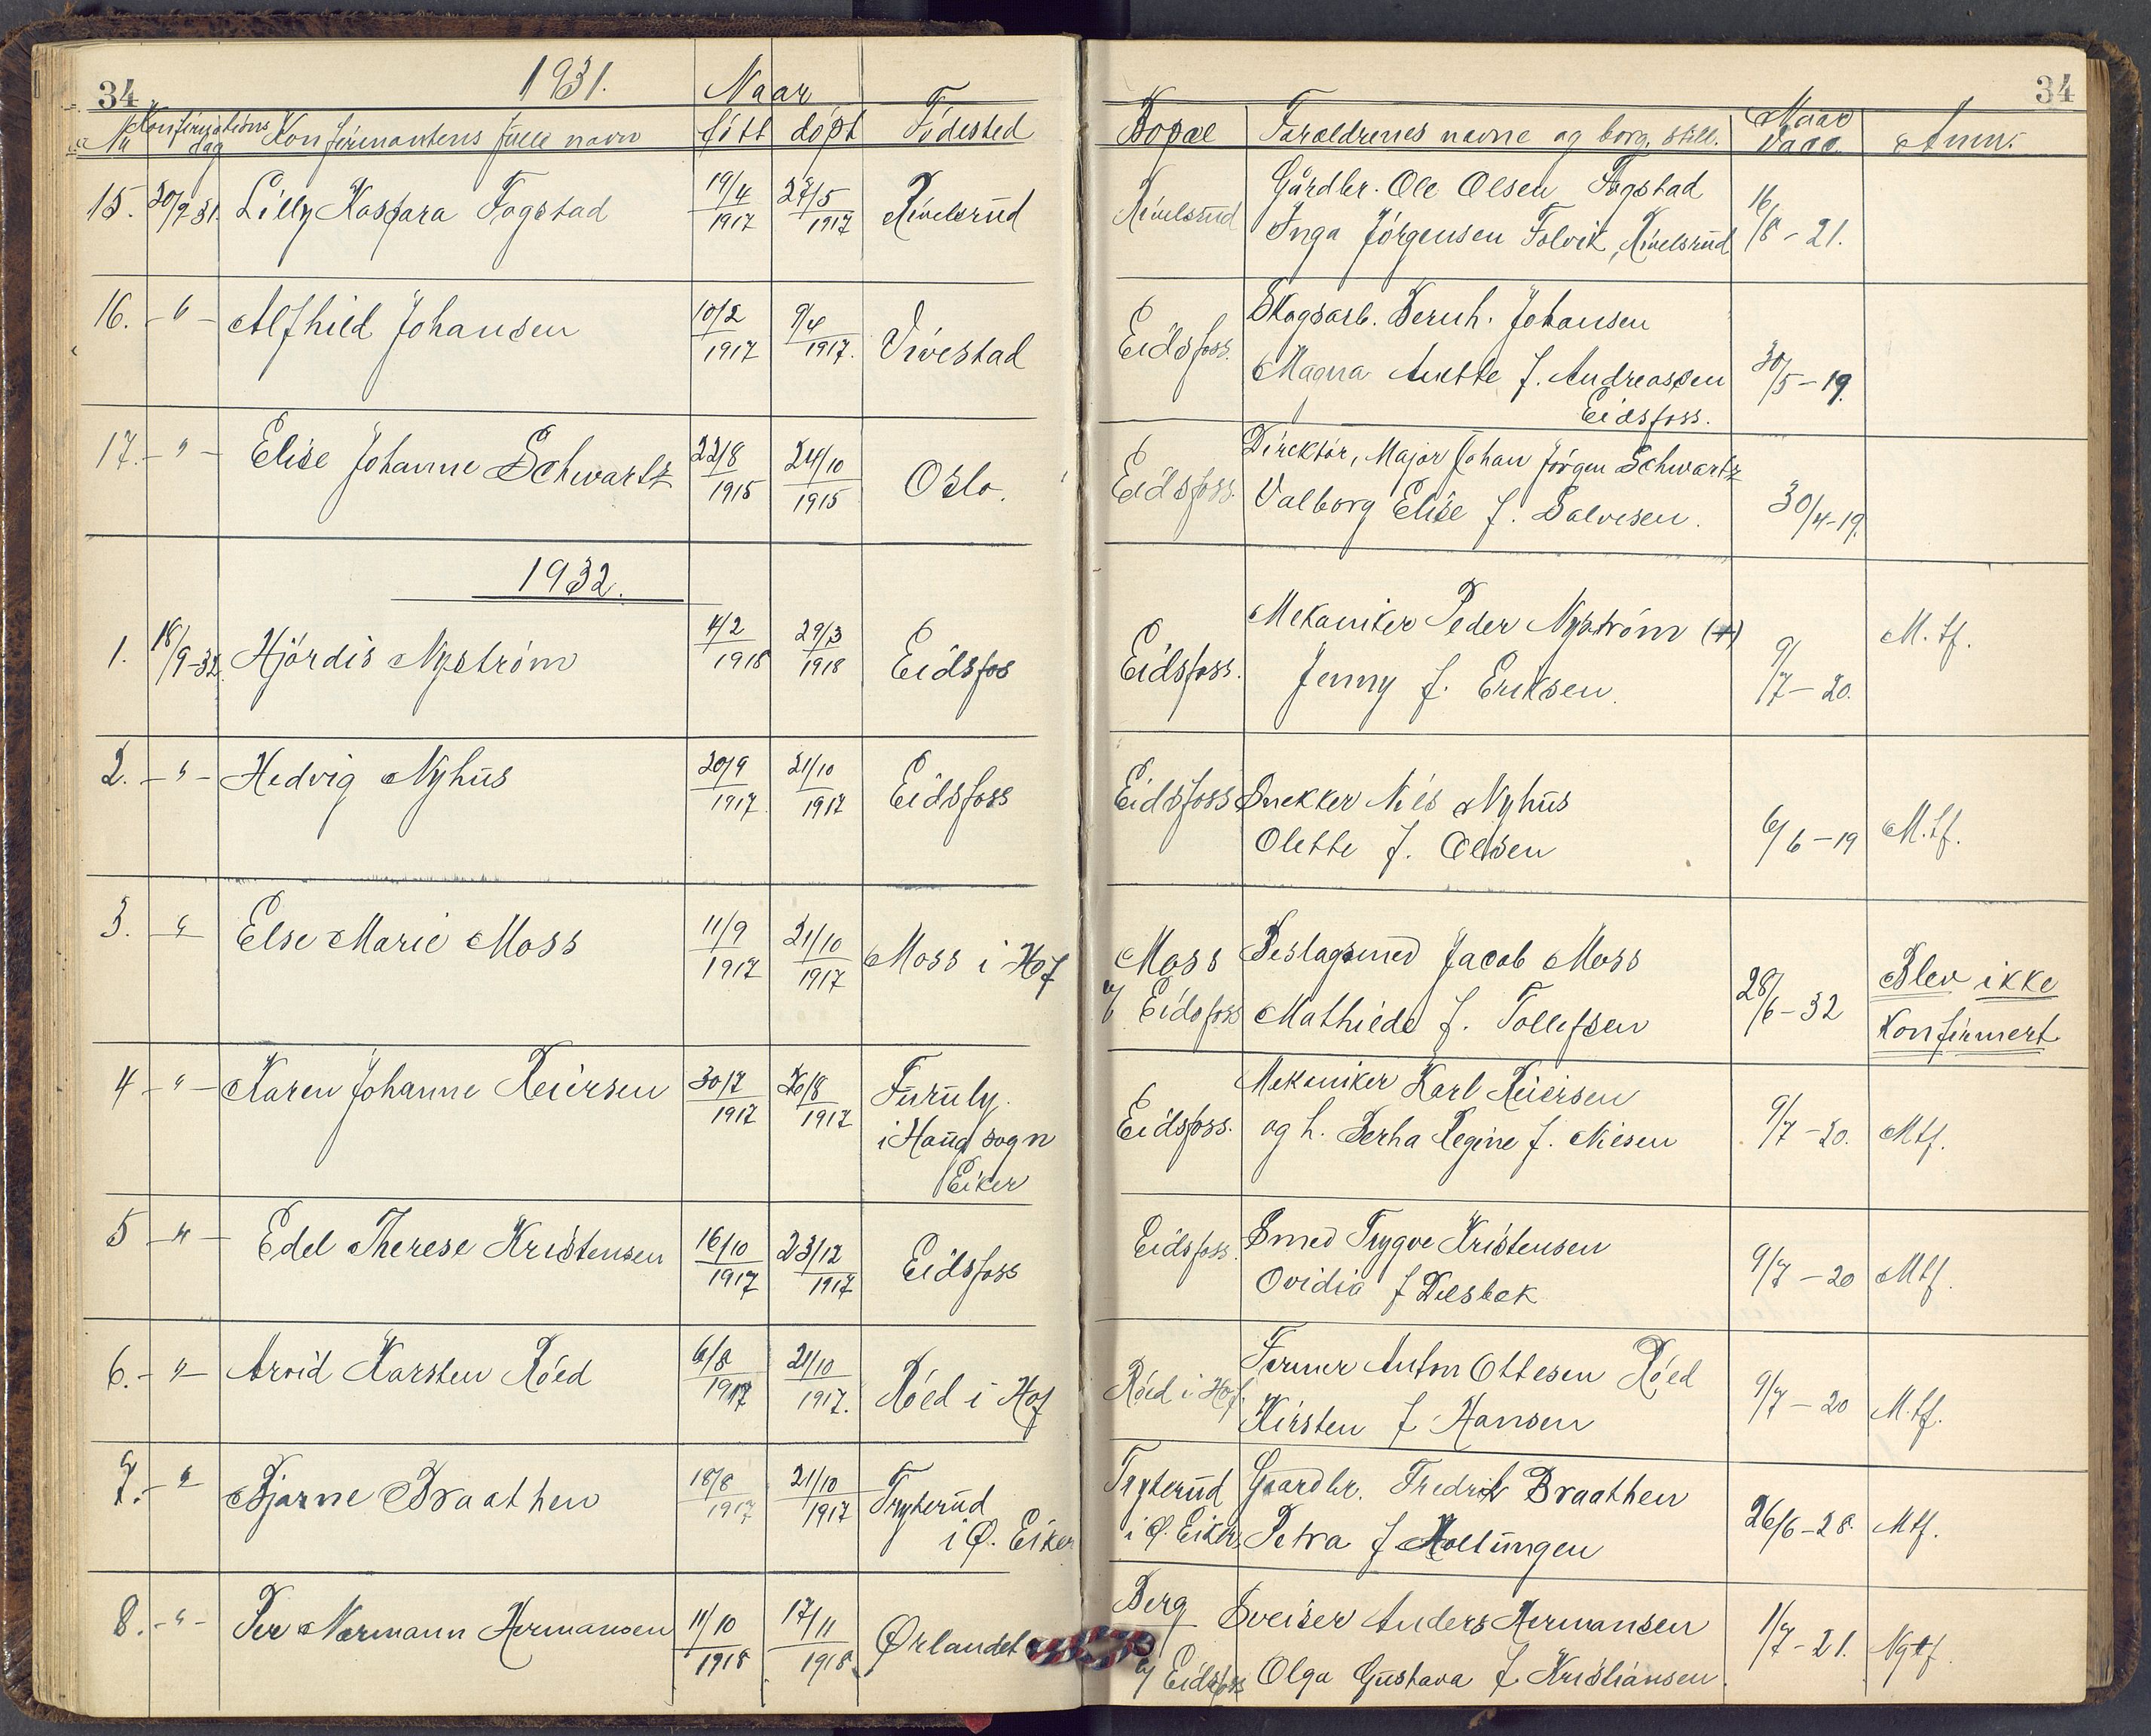 34
1931.
Naar
34
Nr Konfirmations dag Konfirmantens fulle navn født døpt Fødested
Bopæl Foreldrenes navne og borg. still. Naar Vacc. Anm.
15. 30/9 31. Lilly Kaspara Fogstad 19/4 1917 27/5 1917 Rivelsrud
Rivelsrud Gårdbr. Ole Olsen Fogstad 16/8 - 21.
Inga Jørgensen Folvik, Rivelsrud
16. -"- Alfhild Johansen 10/2 1917 9/4 1917. Vivestad
Eidsfoss. Skogsarb. Bernh. Johansen
Magna Anette f. Andreassen 30/5 - 19.
Eidsfoss.
17. -"- Elise Johanne Schwartz 22/8 1915 24/10 1915 Oslo.
Eidsfoss. Direktør, Major Johan Jørgen Schwartz
Valborg Elise f. Salvesen. 30/4-19.
1932.
1. 18/9-32. Hjørdis Nystrøm 4/2 1918 29/3 1918 Eidsfos
Eidsfoss. Mekaniker Peder Nystrøm (+) M. tf.
Jenny f. Eriksen. 9/7 - 20.
2. -"- Hedvig Nyhus 20/9 1917. 21/10 1917 Eidsfoss
Eidsfoss Snekker Nils Nyhus
Olette f. Olsen 6/6 - 19 M.tf.
3. -"- Else Marie Moss 11/9 1917 21/10 1917 Moss i Hof
Moss Beslagsmed Jacob Moss Blev ikke
v/ Eidsfoss Mathilde f. Tollefsen 28/6 - 32 Konfirmert
4 -"- Karen Johanne Reiersen 30/7 1917 26/8 1917 Furuly.
i Haug sogn
Eiker
Eidsfoss. Mekaniker Karl Reiersen
og h. Berha Regine f. Nilsen 9/7 - 20. Mtf.
5 -"- Edel Therese Kristensen 16/10 1917 23/12 1917 Eidsfoss
Eidsfoss. Smed Trygve Kristensen
Ovidia f 9/7 - 20 Mtf.
6. -"- Arvid Karsten Røed 6/8 1917 21/10 1917. Røed i Hof
Røed i Hof Former Anton Ottesen Røed
Kirsten f Hansen 9/7 - 20 M.tf.
7. -"- Bjarne Braathen 18/8 1917 21/10 1917 Tryterud
i Ø. Eiker
Tryterud Gaardbr. Fredrik Braathen
i Ø. Eiker. Petra f 26/6 - 28. Mtf.
8. -"- Per Normann Hermansen 11/10 1918 17/11 1918. Ørlandet
Berg Sveiser Anders Hermansen
v/ Eidsfoss Olga Gustava f. Kristiansen. 1/7 - 21. Ngtf.